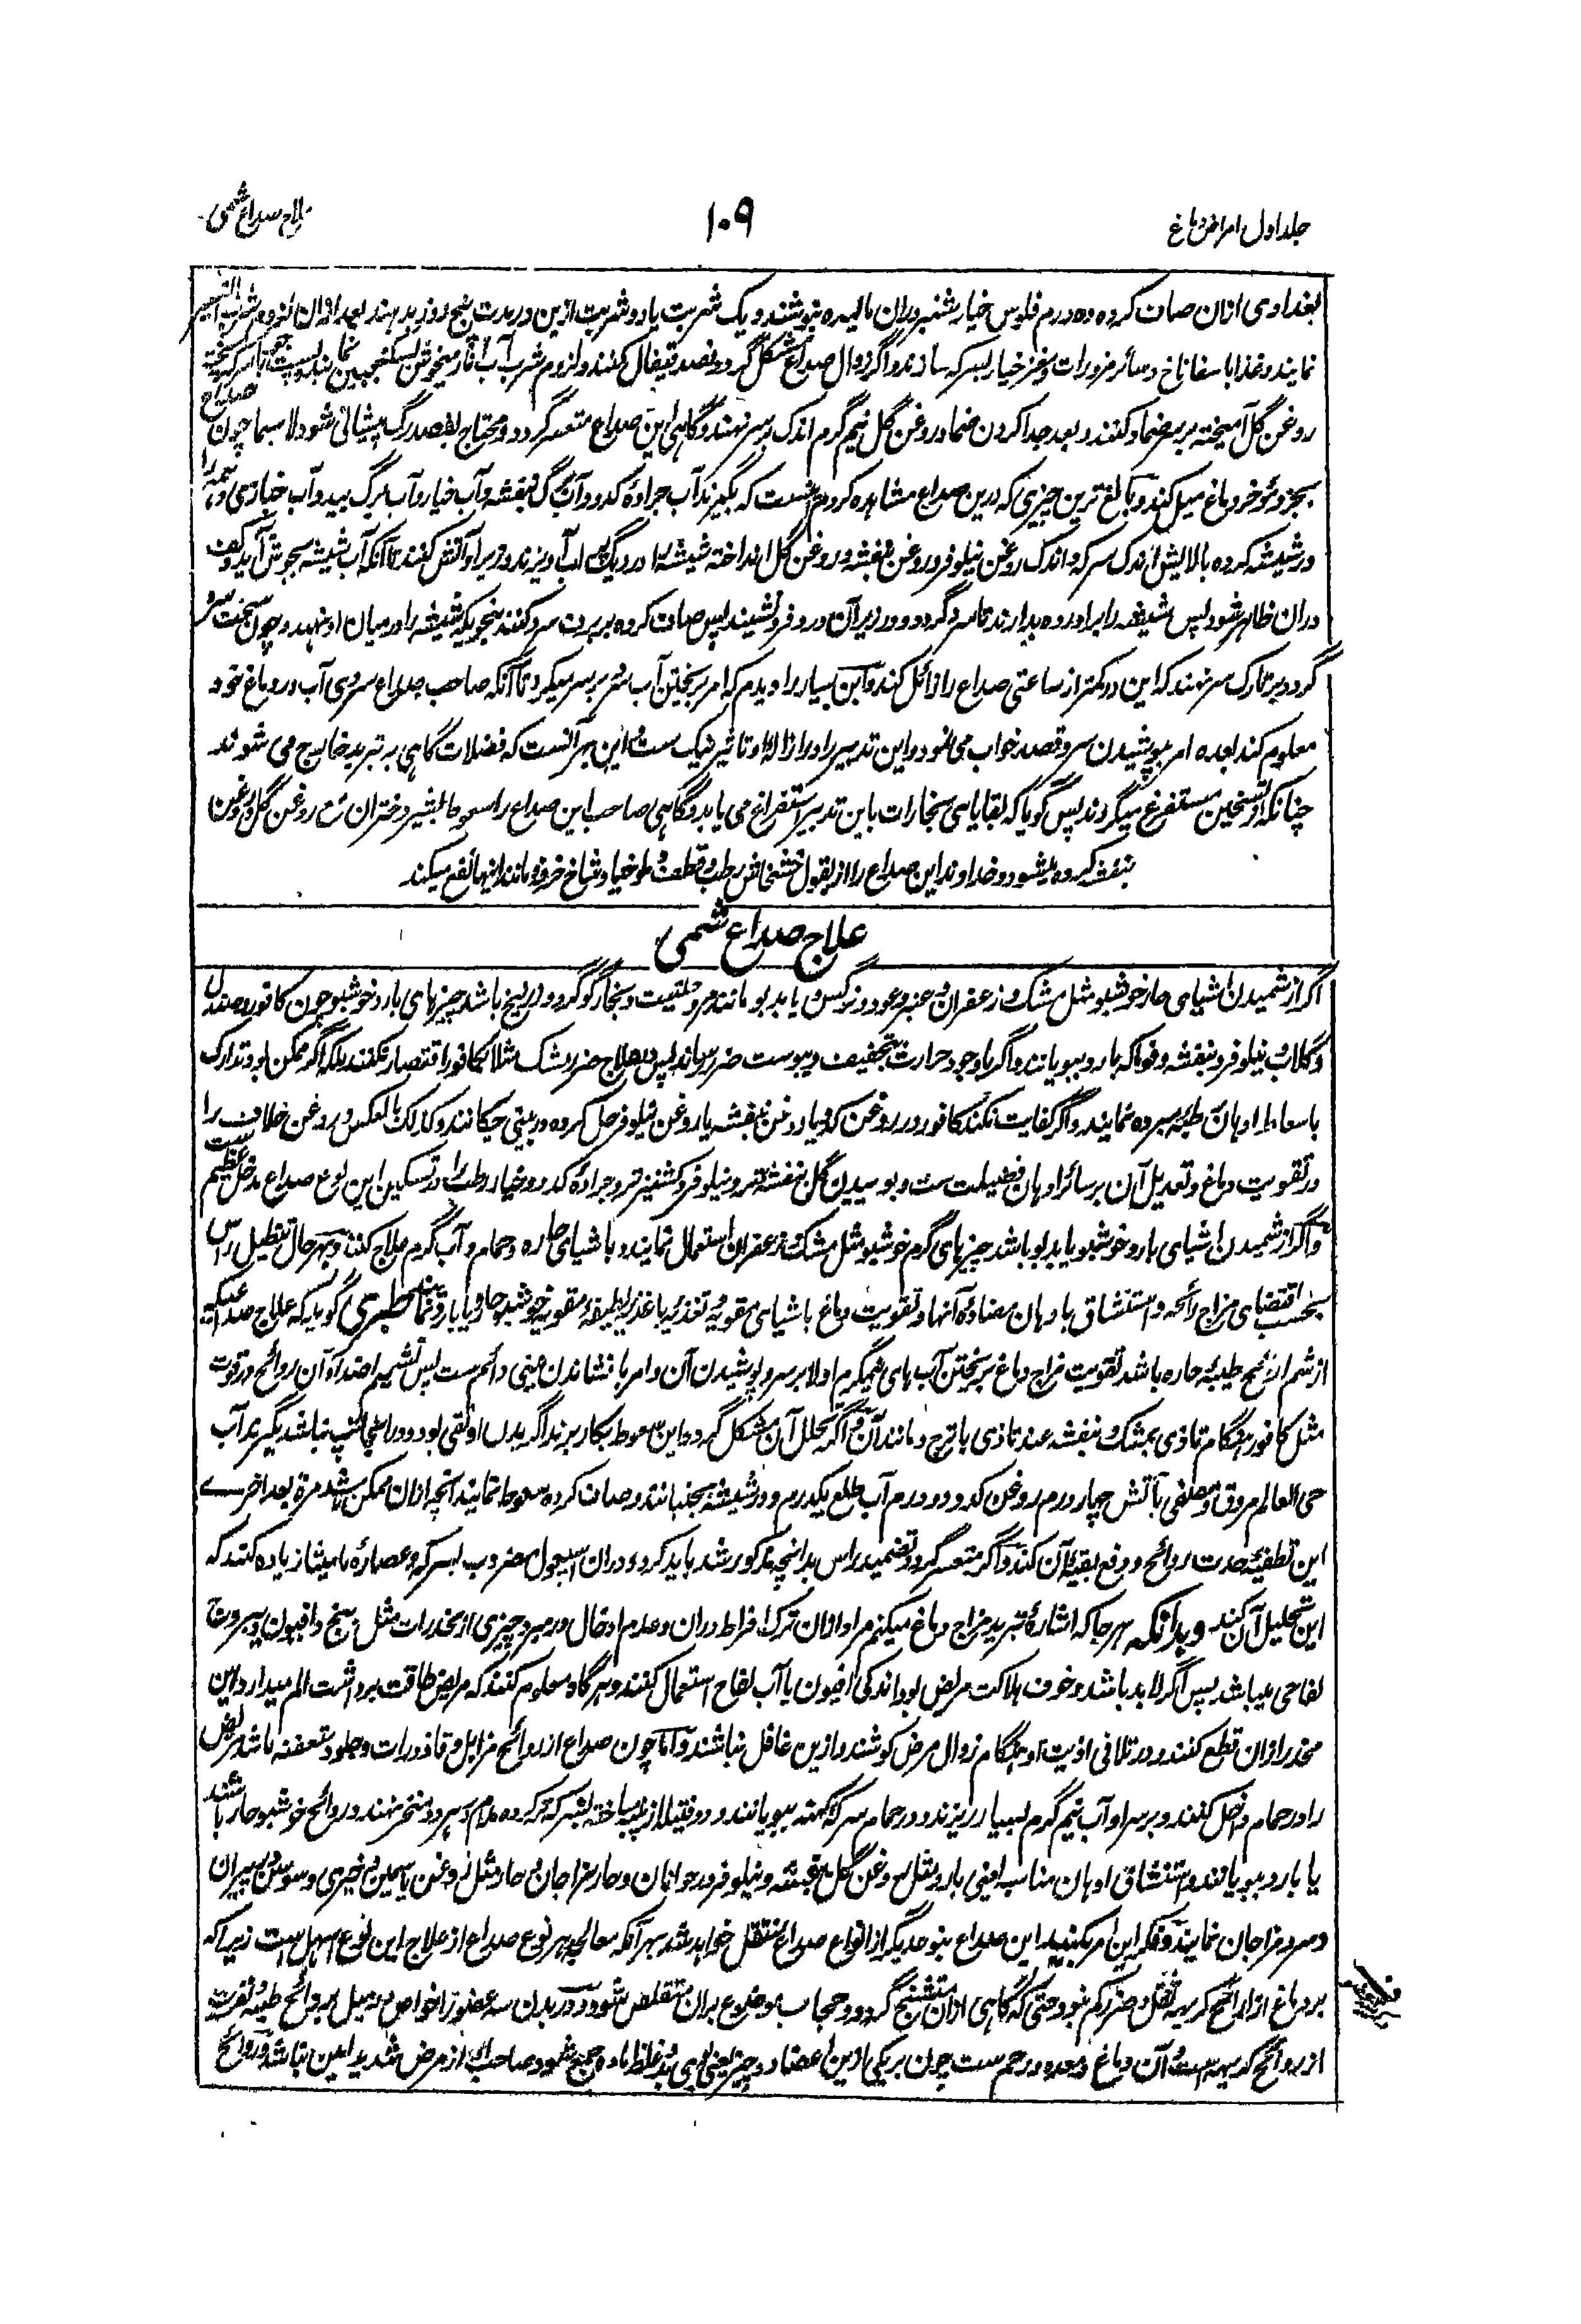 جلد اول امراض دماغ
۱۰۹
علاج صداع شمی
بغدادی ازان صاف کرده ده درم فلوس خیار شنبر دران مالیده بنوشند و یک شربت یا دو شربت ازین در مدت پنج روز بدهند بعد ازان لزوم شرب
نمایند و غذا با سفاناخ و سائر مزورات و مغز خیار بسرکه سازند و اگر زوال صداع مشکل گردد فصد قیفال کنند و لزوم شرب آب انار میخوش بسکنجبین نمایند
روغن گل آمیخته بر سر ضماد کنند و بعد جدا کردن ضماد روغن گل نیم گرم اندک بر سر نهند و گاهی این صداع متعسر گردد و محتاج بفصد رگ پیشانی شود لاسیما چون صداع
بجزو مؤخر دماغ میل کند و بالغ ترین چیزی که درین صداع مشاهده کردم اینست که بگیرند آب جرادهٔ کدو و آب گل بنفشه و آب خیار و آب برگ بید و آب خبازی و همه را
در شیشه کرده بالایش اندک سرکه و اندک روغن نیلوفر و روغن بنفشه و روغن گل انداخته شیشه را در دیگ پر آب آویزند و زیر او آتش کنند تا آنکه آب شیشه بجوش آید و کف
دران ظاهر شود پس شیشه را برآورده بدارند تا سرد گردد و در زیر آن درد فرو نشیند پس صاف کرده بر برف سرد کنند بنحویکه شیشه را در میان او نهند و چون سخت سرد
گردد بر تارک سر نهند که این در کمتر از ساعتی صداع را زائل کند و این بسیار را دیدم که امر بریختن آب سرد بر سر میکرد تا آنکه صاحب صداع سردی آب در دماغ خود
معلوم کند بعده امر بپوشیدن سر و قصد خواب می نمود و این تدبیر را در ازالهٔ او تاثیر نیک ست و این بهر آنست که فضلات گاهی به تبرید خارج می شوند
چنانکه از تسخین مستفرغ میگردند پس گویا که بقایای بخارات باین تدبیر استفراغ می یابد و گاهی صاحب این صداع را سعوط بشیر دختران مع روغن گل و روغن
بنفشه کرده میشود و خداوند این صداع را از بقول خشخاش رطب و قطف و ملوخیا و شاخ خرفه و مانند اینها نفع میکند
علاج صداع شمی
اگر از شمیدن اشیای حار خوشبو مثل مشک و زعفران و عنبر و عود و نرگس و یا بدبو مانند مر و حلتیت و بخار گوگرد و زرنیخ باشد چیزهای بارد خوشبو چون کافور و صندل
و گلاب و نیلوفر و بنفشه و فواکه بارد ببویانند و اگر باوجود حرارت بتجفیف و یبوست ضرر رساند پس در علاج ضرر مشک مثلا بکافور اقتصار نکنند بلکه اگر ممکن بود تدارک
باسعاط ادهان طیبه سرده نمایند و اگر کفایت نکند کافور در روغن کدو یا روغن بنفشه یا روغن نیلوفر حل کرده در بینی چکانند و کذالک بالعکس و روغن خلاف را
در تقویت دماغ و تعدیل آن بر سائر ادهان فضیلت ست و بوسیدن گل بنفشه تر و نیلوفر و کشنیز تر و جرادهٔ کدو و خیار رطب را در تسکین این نوع صداع مدخل عظیم ست
و اگر از شمیدن اشیای بارد خوشبو یا بدبو باشد چیزهای گرم خوشبو مثل مشک و زعفران استعمال نمایند و باشیای حاره و حمام و آب گرم علاج کنند و بهرحال تنطیل راس
بحسب اقتضای مزاج رائحه و استنشاق بادهان مضادهٔ آنها و تقویت دماغ باشیای مقویه و تغذیه باغذیه لطیفه مقویه خوشبو حار و یا بارد نمایند طبری گوید که علاج صداعیکه
از شم روائح طیبه حاره باشد تقویت مزاج دماغ بریختن آب های نیمگرم اولا بر سر و پوشیدن آن و امر بافشاندن بینی دائم ست پس تشمیم اضداد آن روائح در قوت
مثل کافور هنگام تاذی بمشک و بنفشه عند تاذی باترج و مانند آن و اگر تحلل آن مشکل گردد این سعوط بکار برند اگر بدن او نقی بود و دران تپ نباشد بگیرند آب
حی العالم مروق و مصفی بآتش چهار درم روغن کدو دو درم آب طلع یکدرم و در شیشه بجنبانند و صاف کرده سعوط نمایند آنچه ازان ممکن باشد مرة بعد اخرے
این تطفیهٔ حدت روائح و دفع بقیهٔ آن کند و اگر متعسر گردد تضمید راس بدانچه مذکور شد باید کرد و دران اسپغول مضروب بسرکه و عصارهٔ مامیثا زیاده کنند که
این تحلیل آن کند و بدانکه هرجا که اشارهٔ تبرید مزاج دماغ میکنم مراد ازان ترک افراط دران و عدم ادخال در مبرد چیزی از مخدرات مثل بنج و افیون و یبروج
لفاحی میباشد پس اگر لابد باشد و خوف هلاکت مریض بود اندکی افیون یا آب لفاح استعمال کنند و هرگاه معلوم کنند که مریض طاقت برداشت الم میدارد این
مخدر ازان قطع کنند و در تلافی اذیت او هنگام زوال مرض کوشند و ازین غافل نباشند و اما چون صداع از روائح مزابل و قاذورات و جلود متعفنه باشد مریض
را در حمام داخل کنند و بر سر او آب نیم گرم بسیار ریزند و در حمام سرکهٔ کهنه ببویانند و دو فتیلا از پنبه ساخته بسرکه تر کرده مدام در هر دو منخر نهند و روائح خوشبو حار باشند
یا بارد ببویانند و استنشاق ادهان مناسب یعنی بارد مثل روغن گل و بنفشه و نیلوفر در جوانان و حار مزاجان و حار مثل روغن یاسمین و خیری و سوسن در پیران
و سرد مزاجان نمایند و فکر این امر نکنند که این صداع بنوع دیگر از انواع صداع منتقل خواهد شد بهر آنکه معالجه هر نوع صداع از علاج این نوع اسهل است زیراکه
بر دماغ از روائح کریهه ثقل و ضرر کم نبود حتی که گاهی ازان متشنج گردد و حجاب موضوع بران متقلص شود و در بدن سه عضو را خواص میل به روائح طیبه و نفرت
از روائح کریهه است و آن دماغ و معده و رحم ست چون بر یکی ازین اعضا دو چیز یعنی بوی بد و غلظ ماده جمع شود صاحب او از مرض شدید ایمن نباشد و روائح